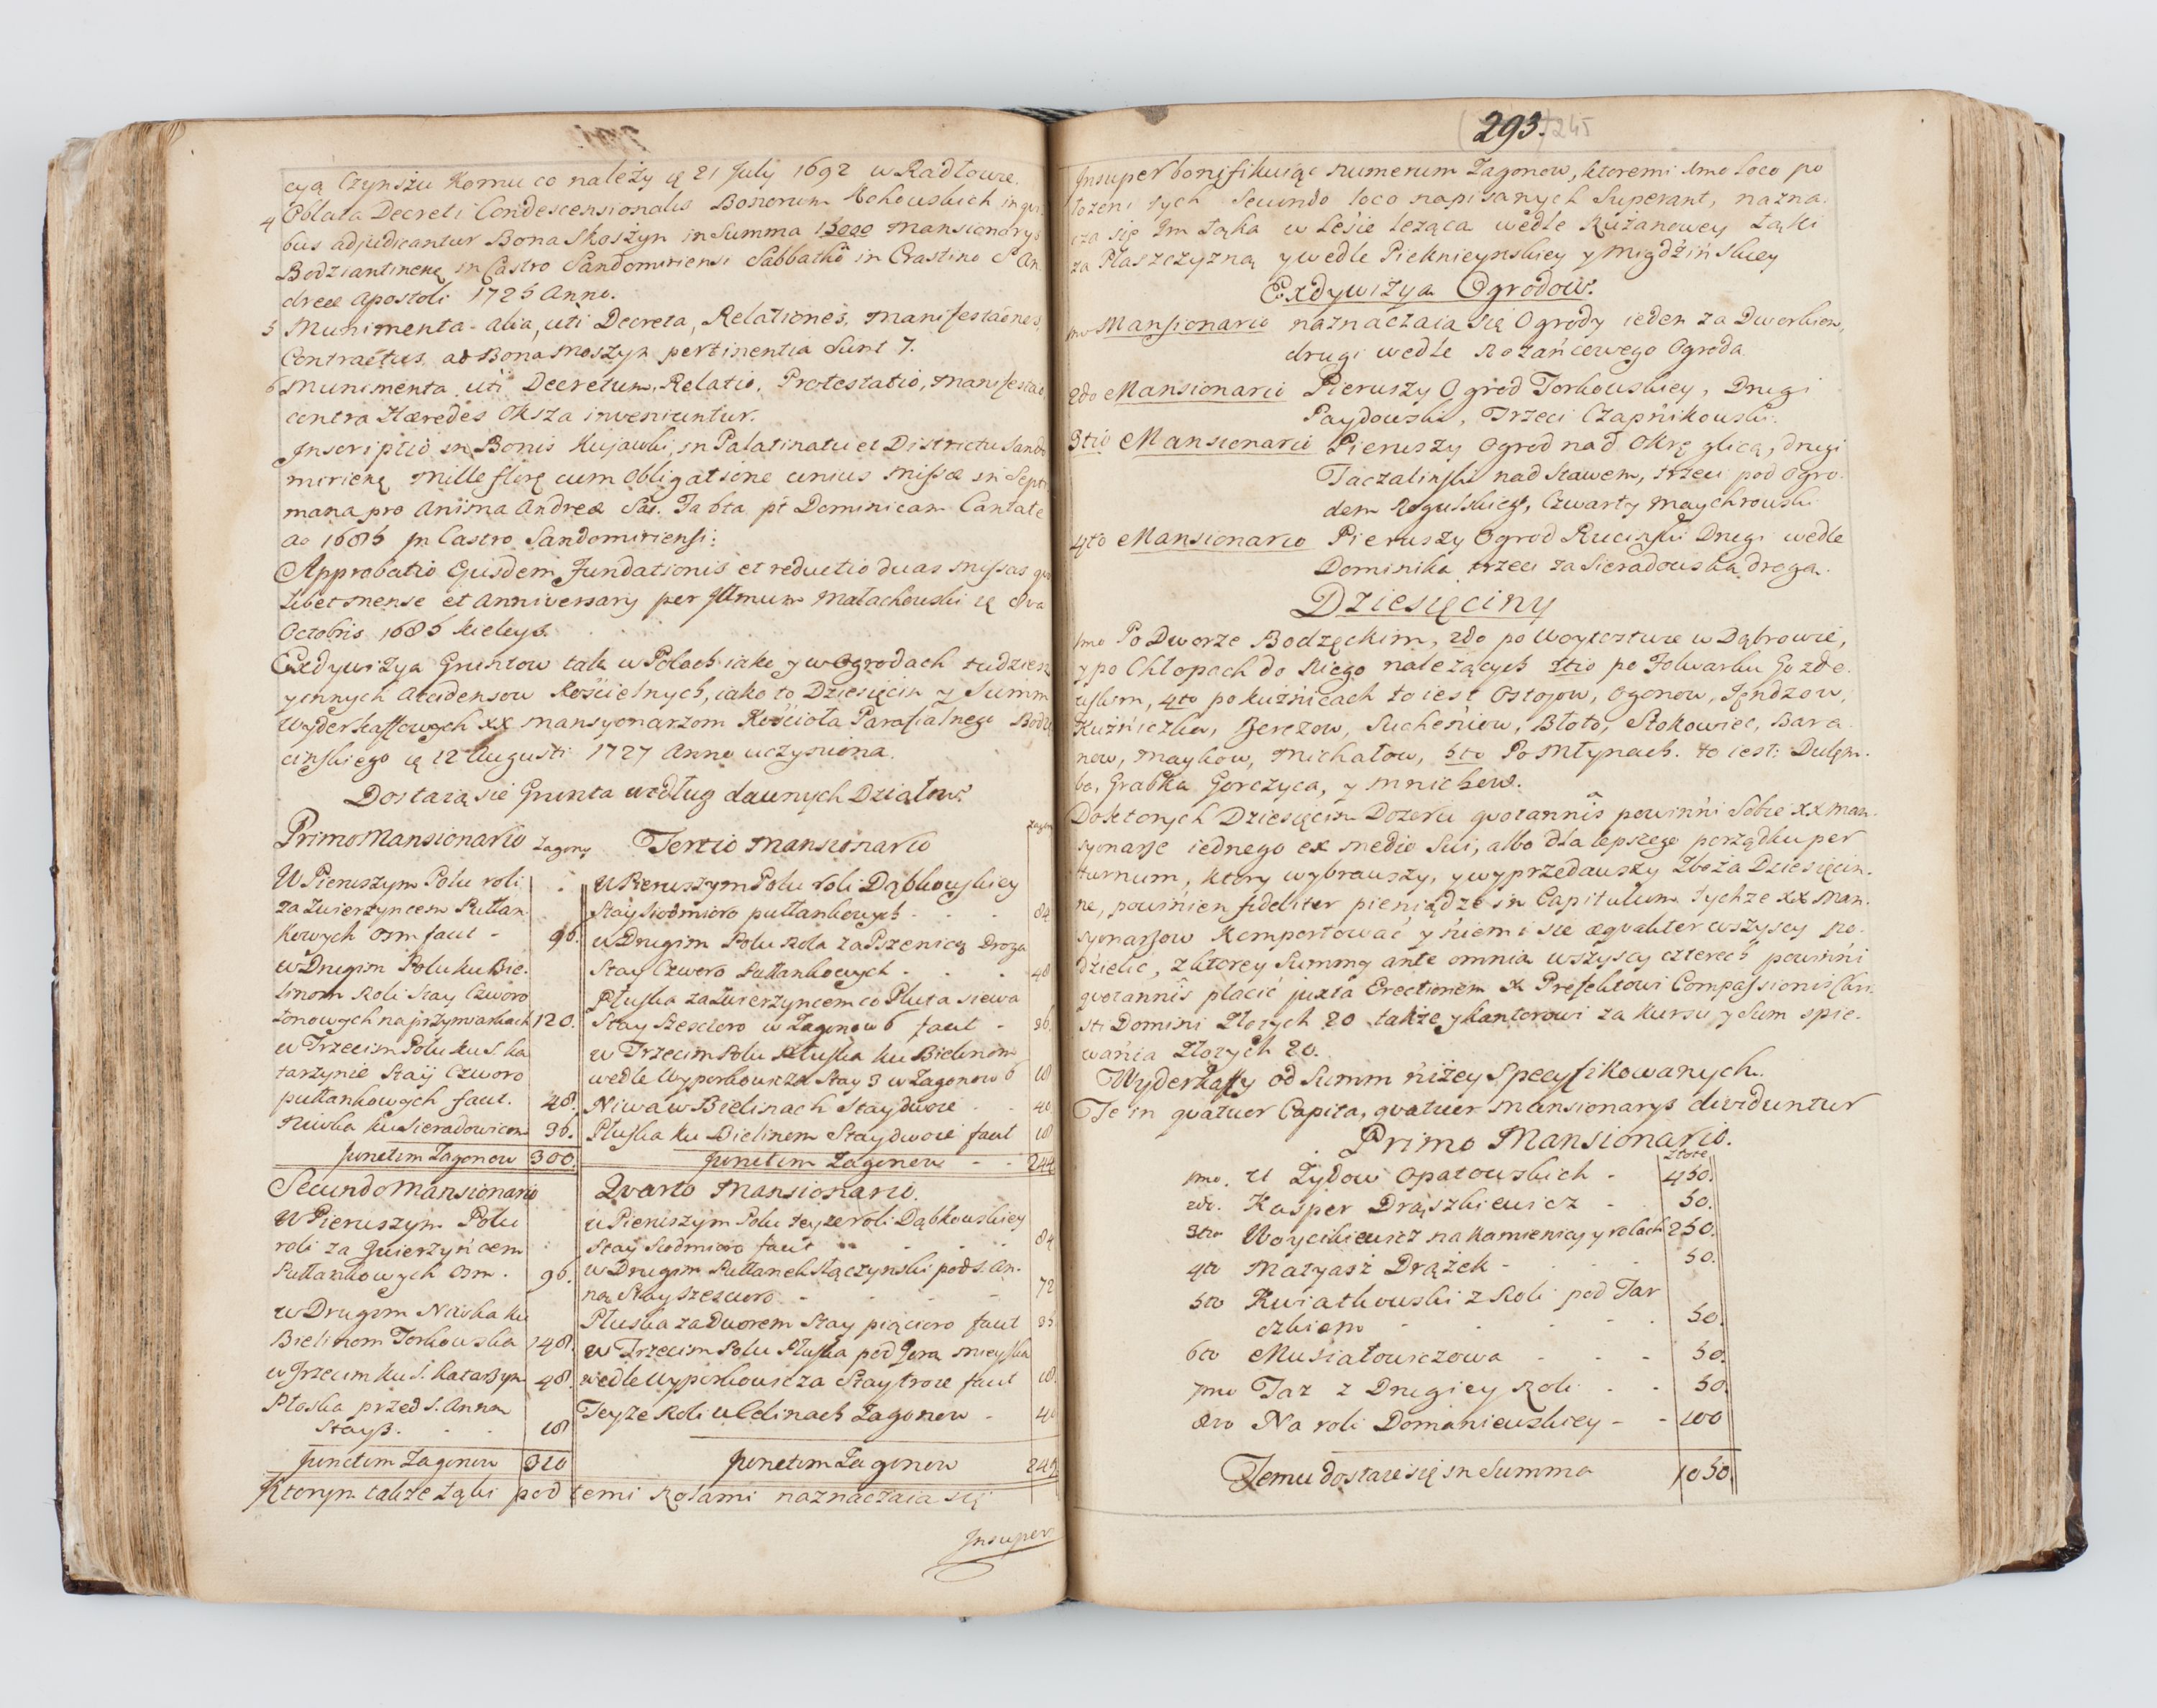 cyą Czynszu Komu co należy ię 21 July 1692 w Radłowie.
4 Oblata Decreti Condescensionalis Bonorum Mchowskich in qui
bus adjudicantur Bona Skoszyn in Summa 13000 Mansionarys
Bodziantinen in Castro Sandomiriensi Sabbatho in Crastino S An
dreæ Apostoli 1725 Anno.
5 Munimenta alia, uti Decreta, Relationes, Manifestaões,
Contractus ad Bona Moszyn pertinentia Sunt 7.
6 Munimenta uti Decretum, Relatio, Protestatio, Manifestao,
contra Hæredes Oksza inveniuntur.
Inscriptio in Bonis Kujawki, in Palatinatu et Districtu Sando
mirienę Mille florę cum Obligatione unius Missæ in Septi
mana pro Anima Andreæ Facta pt Dominicam Cantate
ao 1685 in Castro Sandomiriensi:
Approbatio Ejusdem Fundationis et reductio duas Missas quo
libet mense et Anniversary per Illmum Małachowski ię 8va
Octobris 1685 Kielcys.
Exdywizya Gruntow tak w Polach iako y w Ogrodach tudziesz
y innych Accidensow Kościelnych, iako to Dziesięcin y Summ
Wyderkaffowych xx Mansyonarzom Kościoła Parafialnego Bodzę
cińskiego ię 12 Augusti 1727 Anno uczyniona.
Dostaią się Grunta według dawnych Działow.
Primo Mansionario Zagony
W Pierwszym Polu roli
za Zwierzyncem Pułan
kowych Osm faut - 96.
w Drugim Polu ku Bie.
linom Roli Stay Czworo
łonowych na przymiarkach 120.
w Trzecim Polu ku S. Ka
tarzynie Staÿ Czworo
pułankowych faut. 48.
Niwka ku Sieradowicom 36.
Junctim Zagonow 300.
Secundo Mansionario
W Pierwszym Polu
roli za Zwierzyńcem
Pułankowych Osm. 96.
w Drugim Niwka ku
Bielinom Torkowska 148.
w Trzecim ku S. Katarzyn 48.
Płoska przed S. Anną
Stay 3. 18
Junctim Zagonow 310
Tertio Mansionario Zagony
w Pierwszym Polu roli Dąbkowskiey
Stay Siodmioro pułankowych - 84
w Drugim Polu Rola za Pszenicą Droga
Stay Czworo Pułankowych - 48
Płuska za Zwierzyncem co Pluta siewa
Stay Szescioro w Zagonow 6 faut - 36.
w Trzecim Polu Płuska ku Bielinom
wedle Wyporkowicza Stay 3 w Zagonow 6 18
Niwa w Bielinach Stay dwoie - 40.
Płuska ku Bielinom Stay dwoie faut 18
Junctim Zagonow - - 244
Qvarto Mansionario.
w Pierwszym Polu teyze roli Dąbkowskiey
Stay Siodmioro faut 84
w Drugim Pułanek Stączynski pod S. An.
ną Stay Szescioro - 72
Płuska za Dworem Stay pięcioro faut
w Trzecim Polu Płuska pod Gora mieyska
wedle Wyporkowicza Stay troie faut 18.
Teyze Roli w Bielinach Zagonow - 40
Junctim Zagonow
Ktorym także Łąki pod temi Rolami naznaczaia się
Insuper
293. 245
Insuper bonifikuiąc numerum Zagonow, ktoremi 1mo loco po
łożeni tych Secundo loco napisanych Superant, nazna.
cza się Im Łąka w Leśie leżąca wedle Różanowey Łąki
za Płaszczyzną y wedle Pieknieynskiey y Migdźińskiey
Exdywizya Ogrodow.
1mo Mansionario naznaczaia się Ogrody ieden za Dworkiem,
drugi wedle Rożańcowego Ogroda.
2do Mansionario Pierwszy Ogrod Torkowskiey, Drugi
Paydowski, Trzeci Czapnikowski.
3tio Mansionario Pierwszy Ogrod nad Okręglicą, drugi
Taczalinski nad Stawem, trzeci pod Ogro.
dem Rogulskiego, Czwarty Maychrowski
4to Mansionario Pierwszy Ogrod Rucinski Drugi wedle
Dominika trzeci za Sieradowską drogą.
Dziesięciny
1mo Po Dworze Bodzęckim, 2do po Woytostwie w Dąbrowie,
y po Chłopach do Niego należących 3tio po Folwarku Gozde.
linskim, 4to po kuźnicach to iest Ostojow, Ogonow, Jędrzow,
Kuźniczka, Berezow, Sucheniow, Błoto, Stokowiec, Bara.
now, Maykow, Michałow, 5to Po Młynach. to iest: Dulęm.
ba, Grabka Gorczyca, y Mnichow.
Do ktorych Dziesięcin Dozoru quotannis powinni Sobie xx Man.
syonarze iednego ex medio Sui, albo dla lepszego porządku per
turnum, ktory wybrawszy, y wyprzedawszy Zboża Dziesięcin.
ne, powinien fideliter pieniądze in Capitulum tychze xx Man.
syonarzow Komportować y niemi się æqualiter wszyscy po.
dzielić, z ktorey Summy ante omnia wszyscy czterech powinni
quotannis płacić juxta Erectionem x Prefektowi Compassionis Chri.
sti Domini Złotych 20 także y kantorowi za Kursu y Sum spie.
wania Złotych 20.
Wyderkaffy od Summ niżey Specyfikowanych.
Te in qvatuor Capita, qvatuor Mansionarys dividuntur
Primo Mansionario.
Złote
1mo. U Zydow Opatowskich - 450.
2do. Kasper Drąszkiewicz - 50.
3tio Woycikiewicz na Kamienicy y rolach 250.
4to Matyasz Drążek - 50.
5to Kwiatkowski z Roli pod Tar
czkiem - 50.
6to Musiałowiczowa - 50.
7mo Taz z Drugiey Roli - 50.
8vo Na roli Domaniewskiey - - 100
Temu dostaie się in Summa 1050.